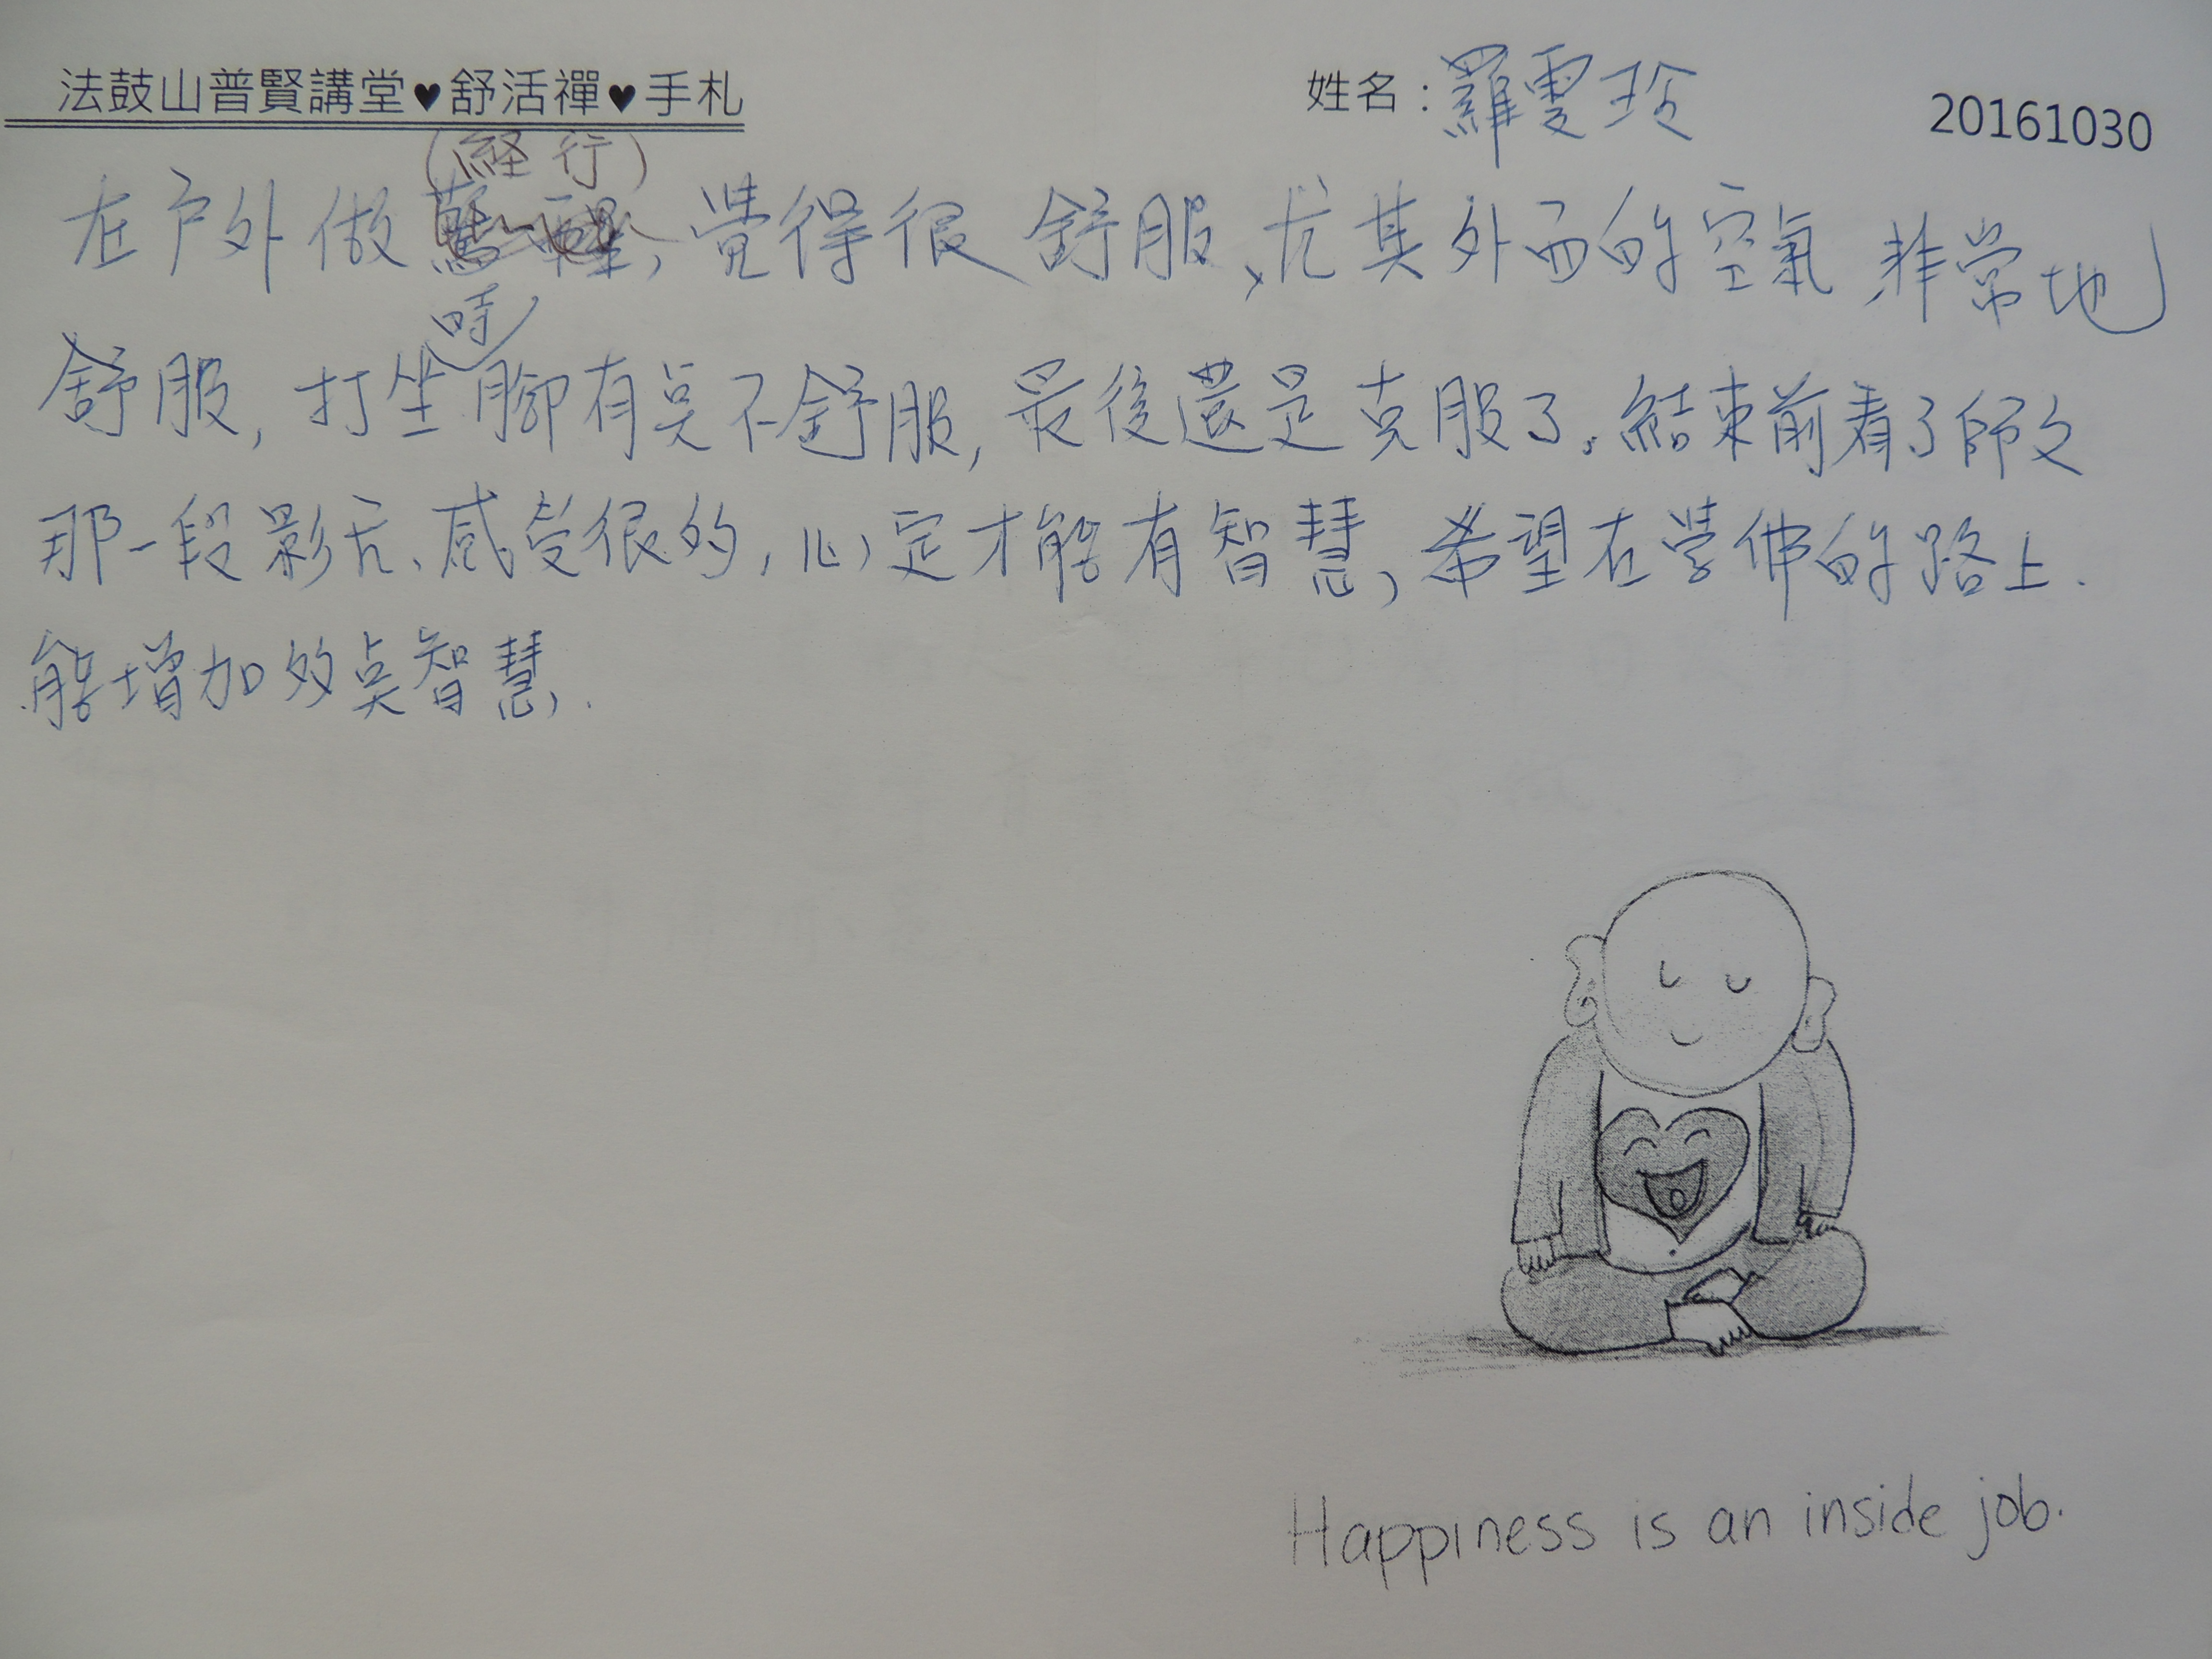 法鼓山普賢講堂♥舒活禪♥手札
姓名：羅雯玲
20161030
(経行)
在户外做，覺得很舒服、尤其外面的空氣非常地
時
舒服，打坐腳有点不舒服，最後還是克服了。結束前看了師父
那一段影片、感受很多，心定才能有智慧，希望在學佛的路上.
能增加多点智慧.
Happiness is an inside job.